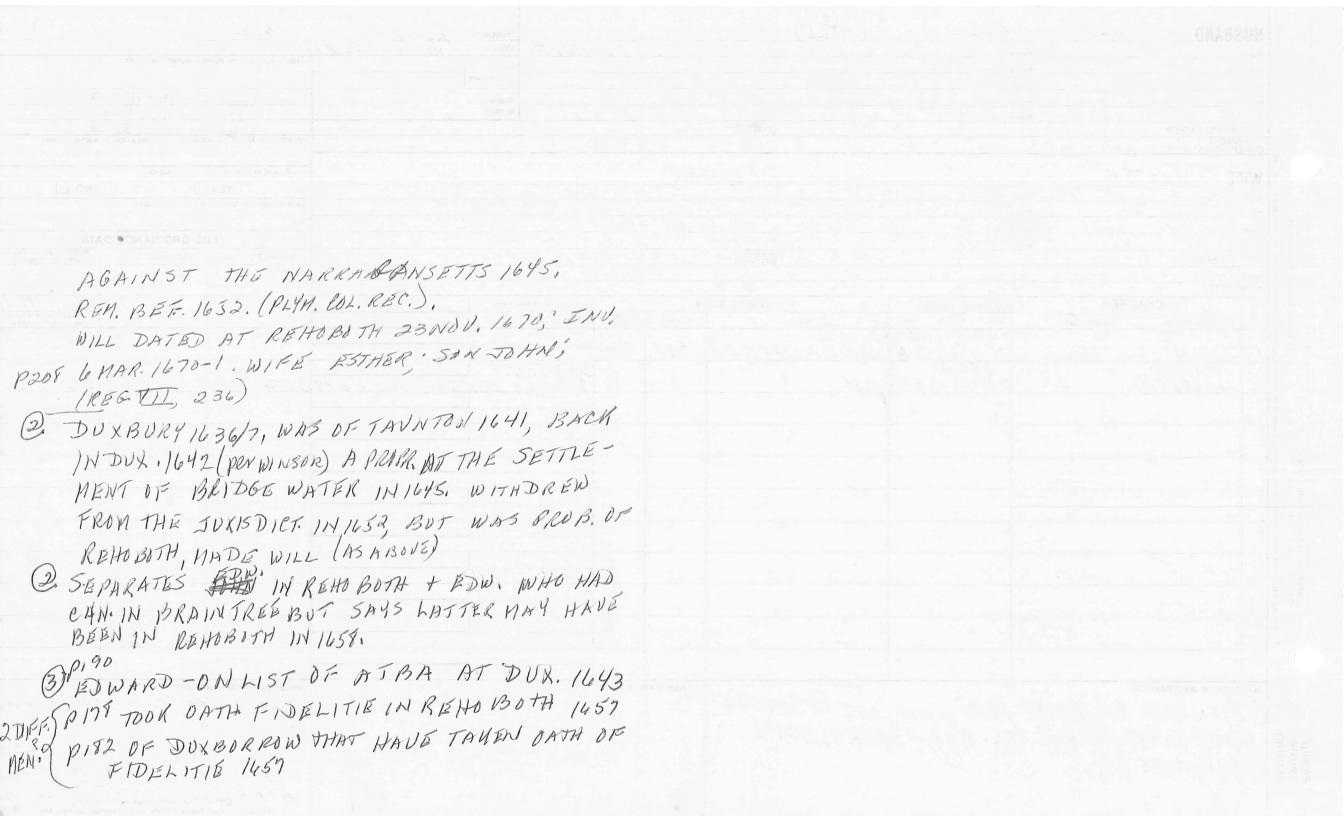 AGAINST THE NARRAGANSETTS 1645.
REM. BEF. 1652. (PLYM. COL. REC.).
WILL DATED AT REHOBOTH 23 NOV. 1670; INV.
P208 6 MAR. 1670-1. WIFE ESTHER; SON JOHN;
(REG VII, 236)
② DUXBURY 1636/7, WAS OF TAUNTON 1641, BACK
IN DUX. 1642 (per WINSOR) A PROPR. AT THE SETTLE-
MENT OF BRIDGEWATER IN 1645. WITHDREW
FROM THE JURISDICT. IN 1652, BUT WAS PROB. OF
REHOBOTH, MADE WILL (AS ABOVE)
② SEPARATES EDW. IN REHOBOTH + EDW. WHO HAD
CHN. IN BRAINTREE BUT SAYS LATTER MAY HAVE
BEEN IN REHOBOTH IN 1658.
P190
③ EDWARD - ON LIST OF ATBA AT DUX. 1643
2 DIFF. P178 TOOK OATH FIDELITIE IN REHOBOTH 1657
MEN. ? P182 OF DUXBORROW THAT HAVE TAKEN OATH OF
FIDELITIE 1657
HUSBAND
WIFE